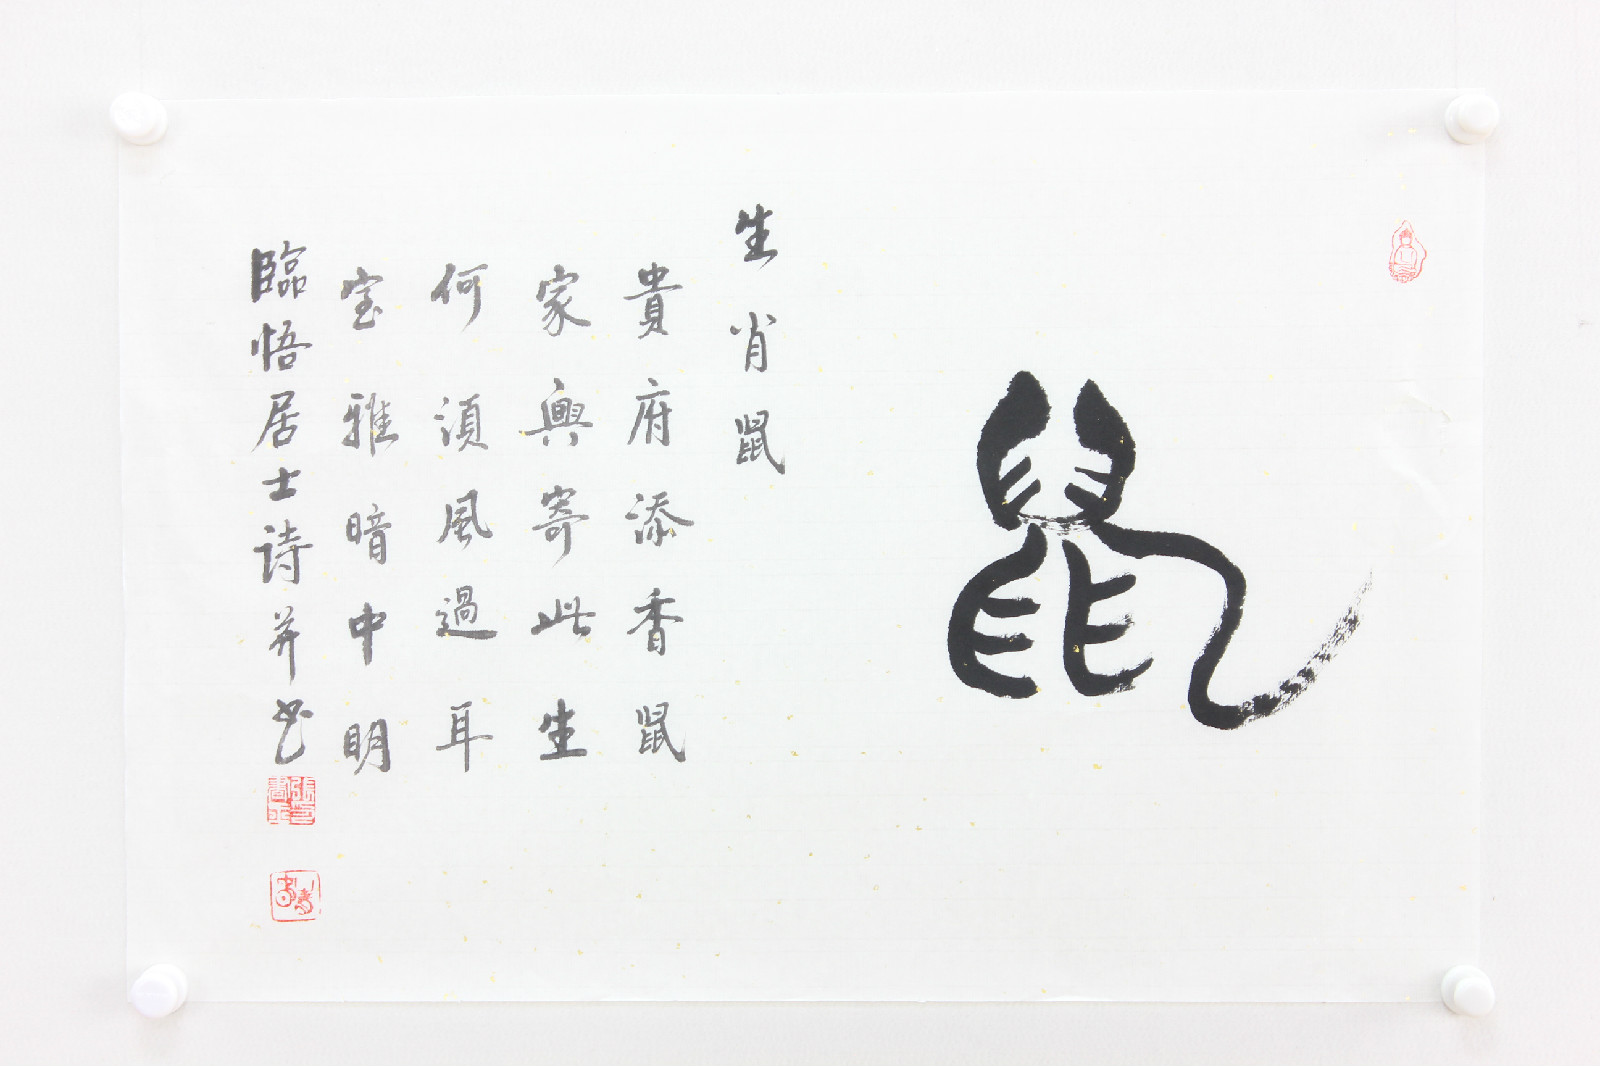 鼠
生肖鼠
貴府添香鼠
家興寄此生
何須風過耳
宝雅暗中明
臨悟居士詩并书